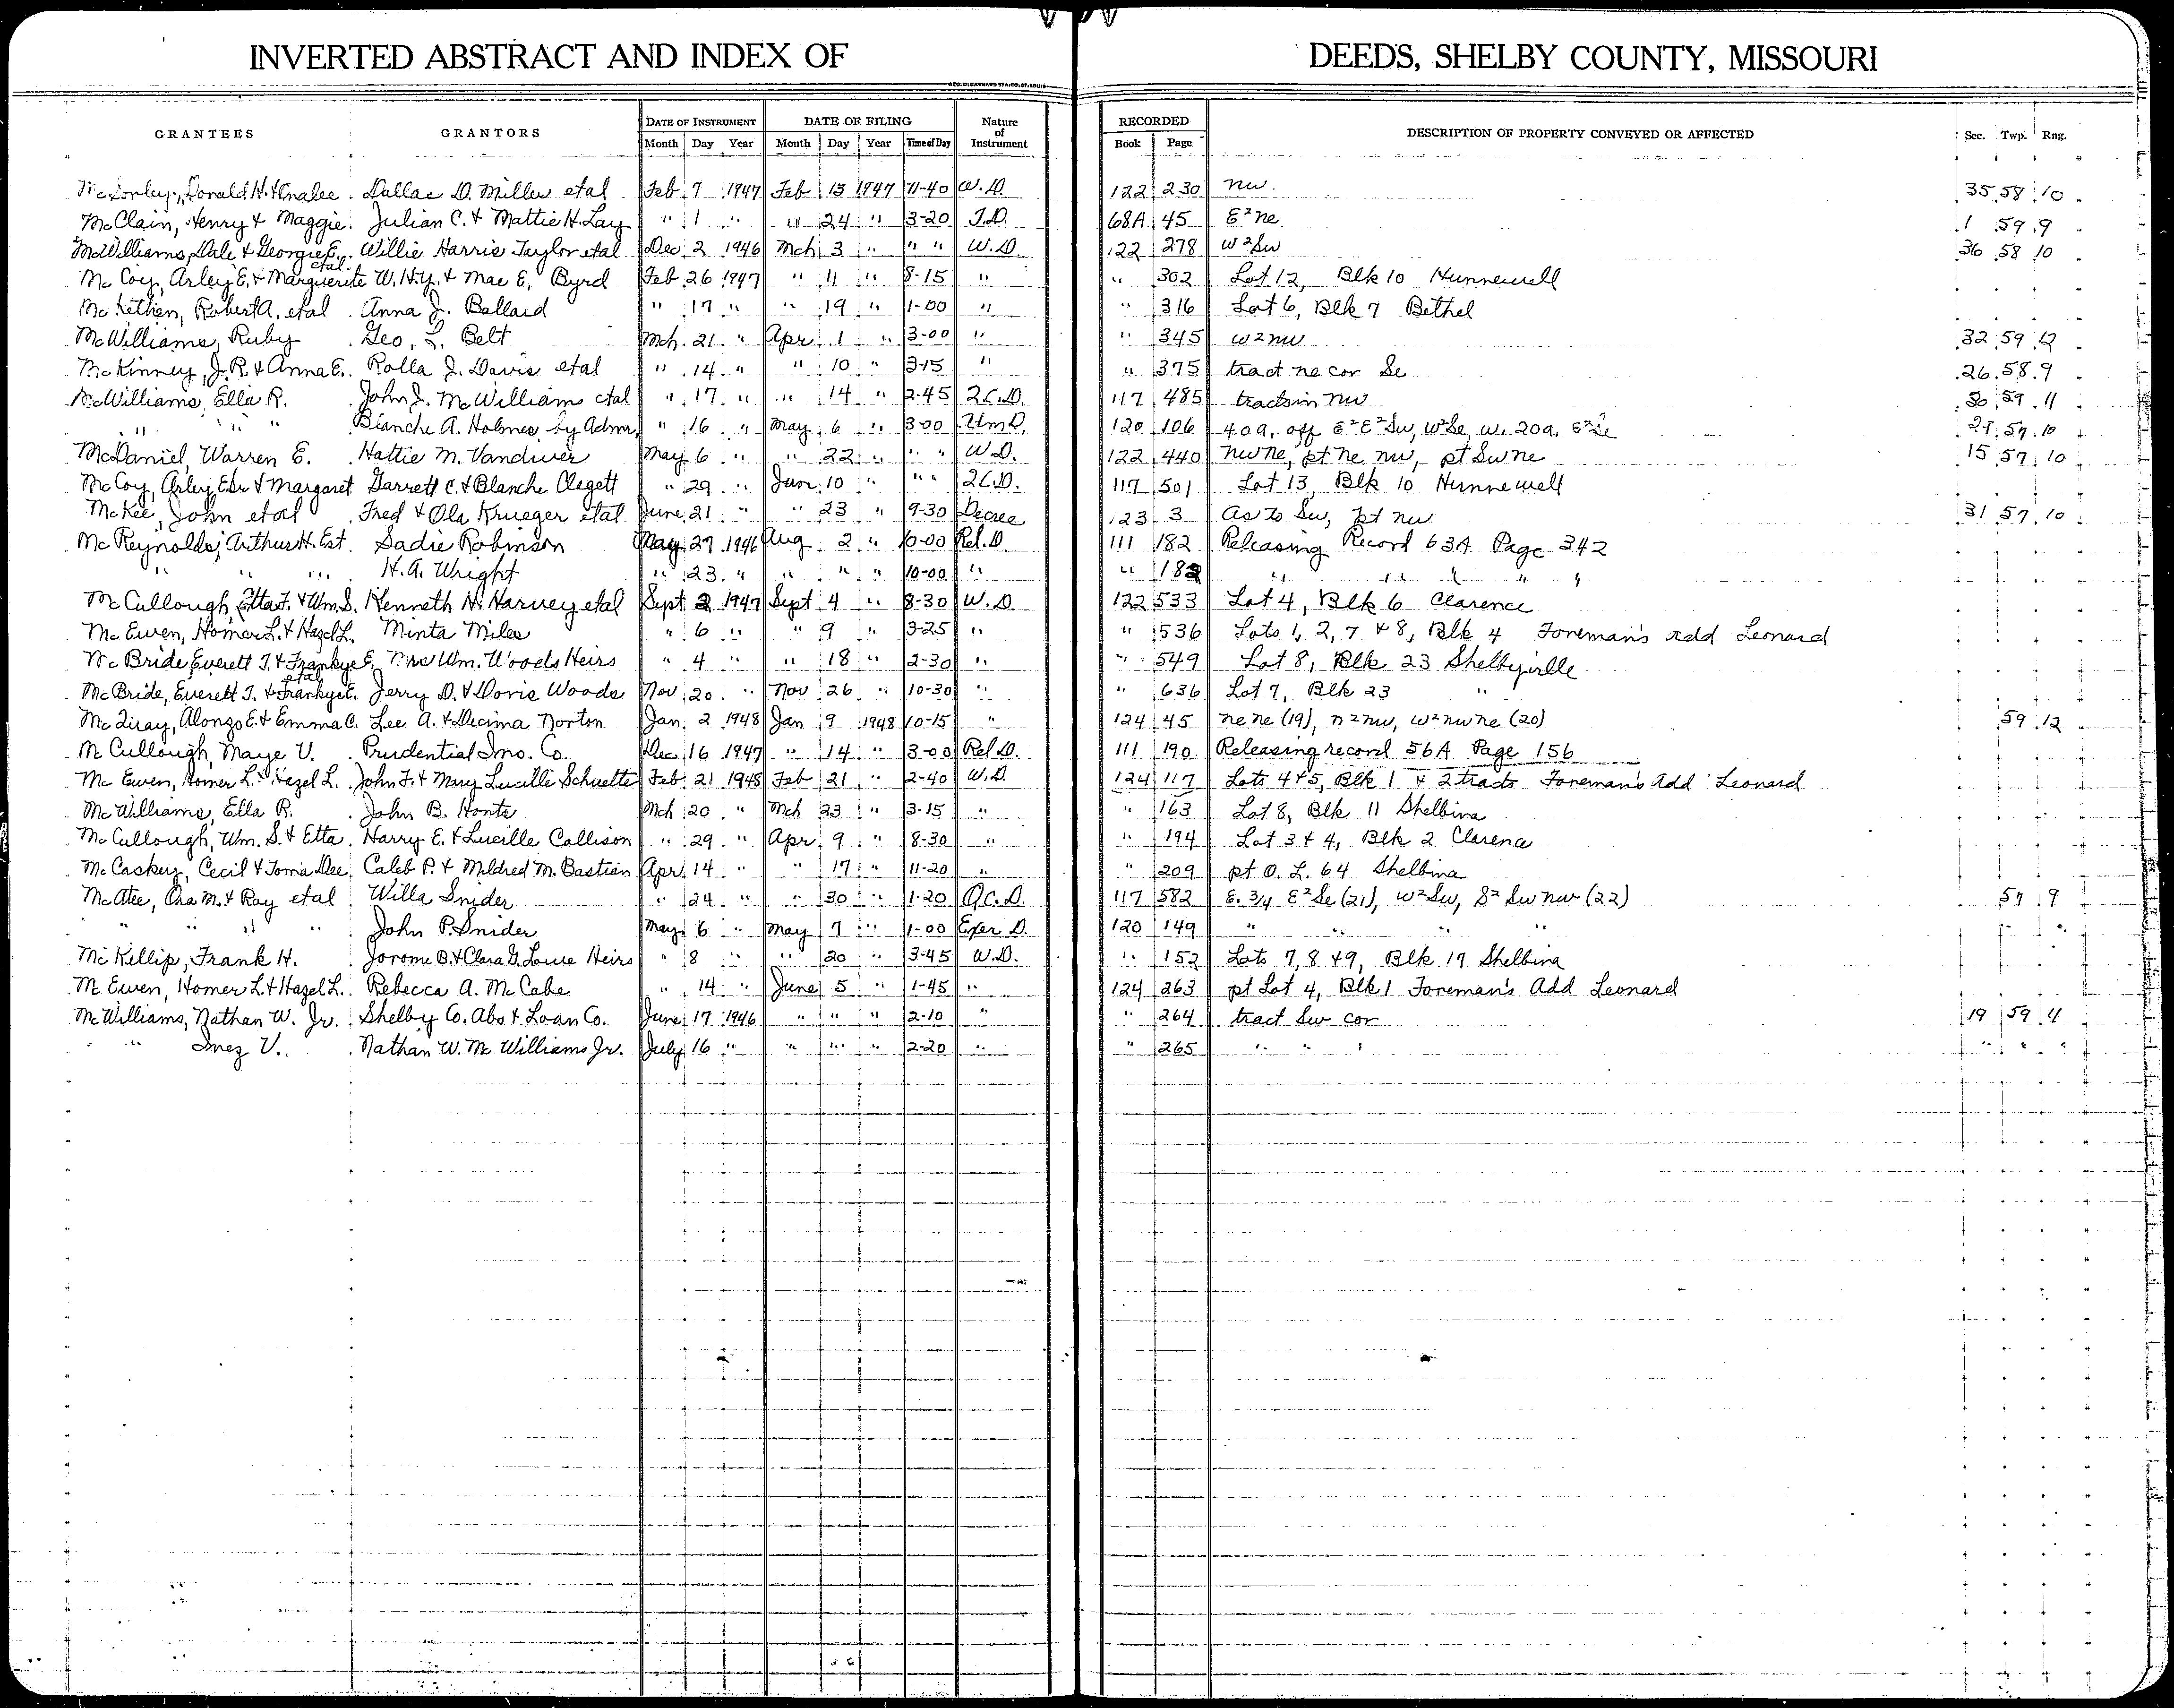 INVERTED ABSTRACT AND INDEX OF DEEDS, SHELBY COUNTY, MISSOURI
GEO. D. BARNARD STA. CO. ST. LOUIS
GRANTEES GRANTORS DATE OF INSTRUMENT DATE OF FILING Nature of Instrument RECORDED DESCRIPTION OF PROPERTY CONVEYED OR AFFECTED Sec. Twp. Rng.
Month Day Year Month Day Year Time of Day Book Page
Donald H. & Analee Dallas D. Miller etal Feb 7 1947 Feb 13 1947 11-40 W.D. 122 230 nw 35 58 10
McClain, Henry & Maggie Julian C. & Mattie H. Lay " 1 " " 24 " 3-20 T.D. 68A 45 E² ne 1 59 9
McWilliams, Dale & Georgie E. etal Willie Harris Taylor etal Dec 2 1946 Mch 3 " " " W.D. 122 278 W² Sw 36 58 10
McCoy, Arley E. & Marguerite W. H. Y. & Mae E. Byrd Feb 26 1947 " 11 " 8-15 " " 302 Lot 12, Blk 10 Hunnewell
McKethen, Robert A. etal Anna J. Ballard " 17 " " 19 " 1-00 " " 316 Lot 6, Blk 7 Bethel
McWilliams, Ruby Geo. L. Belt Mch. 21 " Apr 1 " 3-00 " " 345 W² nw 32 59 12
McKinney, J. R. & Anna E. Rolla J. Davis etal " 14 " " 10 " 3-15 " " 375 tract ne cor Se 26 58 9
McWilliams, Ella R. John J. McWilliams etal " 17 " " 14 " 2-45 Q.C.D. 117 485 tracts in nw 30 59 11
" " " Blanche A. Holmes by Admr. " 16 " May 6 " 3-00 120 106 40a, off E² E² Sw, W² Se, W. 20a, E² Se 29 57 10
McDaniel, Warren E. Hattie M. Vandiver May 6 " " 22 " " " W.D. 122 440 nw ne, pt ne nw, pt Sw ne 15 57 10
McCoy, Arley E. Sr & Margaret Garrett C. & Blanche Clagett " 29 " June 10 " " " Q.C.D. 117 501 Lot 13, Blk 10 Hunnewell
McKee, John etal Fred & Ola Krueger etal June 21 " " 23 " 9-30 Decree 123 3 As to Sw, pt nw 31 57 10
McReynolds, Arthur H. Est. Sadie Robinson May 27 1946 Aug 2 " 10-00 Rel. D. 111 182 Releasing Record 63A Page 342
" " " H. A. Wright " 23 " " " " 10-00 " " 182 " " " " "
McCullough, Etta F. & Wm. S. Kenneth H. Harvey etal Sept 2 1947 Sept 4 " 8-30 W.D. 122 533 Lot 4, Blk 6 Clarence
McEwen, Homer L. & Hazel L. Minta Miles " 6 " " 9 " 3-25 " " 536 Lots 1, 2, 7 & 8, Blk 4 Foreman's Add Leonard
McBride, Everett T. & Frankye E. etal Wm. Woods Heirs " 4 " " 18 " 2-30 " " 549 Lot 8, Blk 23 Shelbyville
McBride, Everett T. & Frankye E. Jerry D. & Doris Woods Nov 20 " Nov 26 " 10-30 " " 636 Lot 7, Blk 23 "
Alonzo E. & Emma C. Lee A. & Decima Norton Jan. 2 1948 Jan 9 1948 10-15 " 124 45 ne ne (19), n² nw, w² nw ne (20) 59 12
McCullough, Maye V. Prudential Ins. Co. Dec 16 1947 " 14 " 3-00 Rel D. 111 190 Releasing record 56A Page 156
McEwen, Homer L. & Hazel L. John F. & Mary Lucille Schuette Feb 21 1948 Feb 21 " 2-40 W.D. 124 117 Lots 4 & 5, Blk 1 & 2 tracts Foreman's Add Leonard
McWilliams, Ella R. John B. Honts Mch 20 " Mch 23 " 3-15 " " 163 Lot 8, Blk 11 Shelbina
McCullough, Wm. S. & Etta Harry E. & Lucille Collison " 29 " Apr 9 " 8-30 " " 194 Lot 3 & 4, Blk 2 Clarence
McCaskey, Cecil & Toma Dee Caleb P. & Mildred M. Bastian Apr. 14 " " 17 " 11-20 " " 209 pt O. L. 64 Shelbina
McAtee, Ora M. & Ray etal Willa Snider " 24 " " 30 " 1-20 Q.C.D. 117 582 E. 3/4 E² Se (21), W² Sw, S² Sw nw (22) 57 9
" " " " John P. Snider May 6 " May 7 " 1-00 Exer D. 120 149 " " " " " "
McKillip, Frank H. Jerome B. & Clara G. Lowe Heirs " 8 " " 20 " 3-45 W.D. " 152 Lots 7, 8 & 9, Blk 17 Shelbina
McEwen, Homer L. & Hazel L. Rebecca A. McCabe " 14 " June 5 " 1-45 " 124 263 pt Lot 4, Blk 1 Foreman's Add Leonard
McWilliams, Nathan W. Jr. Shelby Co. Abs & Loan Co. June 17 1946 " " " 2-10 " " 264 tract Sw cor 19 59 11
" Inez V. Nathan W. McWilliams Jr. July 16 " " " " 2-20 " " 265 " " " " " "